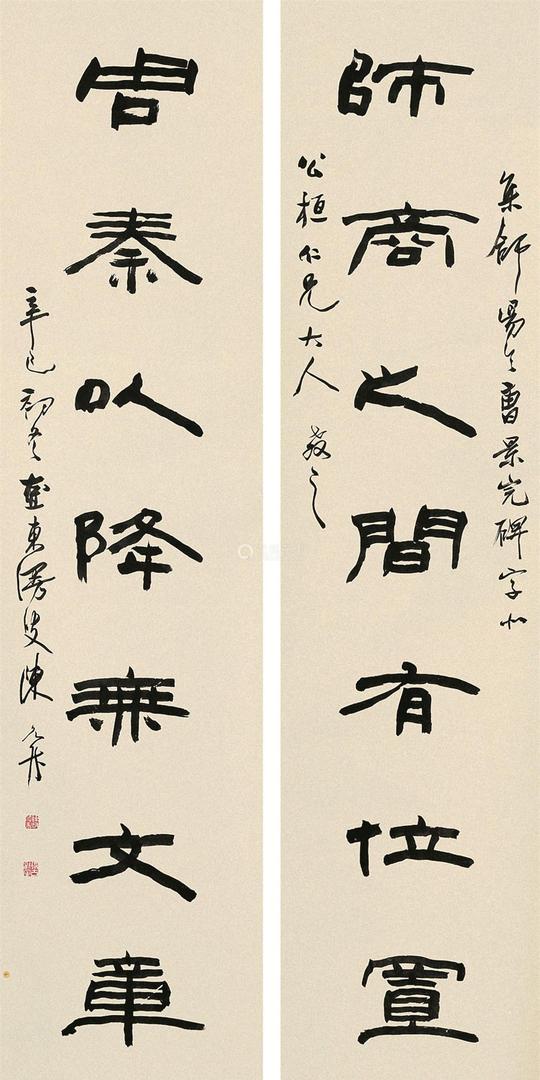 集郃陽令曹景完碑字似
師商之間有位置
公桓仁兄大人教之
周秦以降無文章
辛巳初冬東叟陳